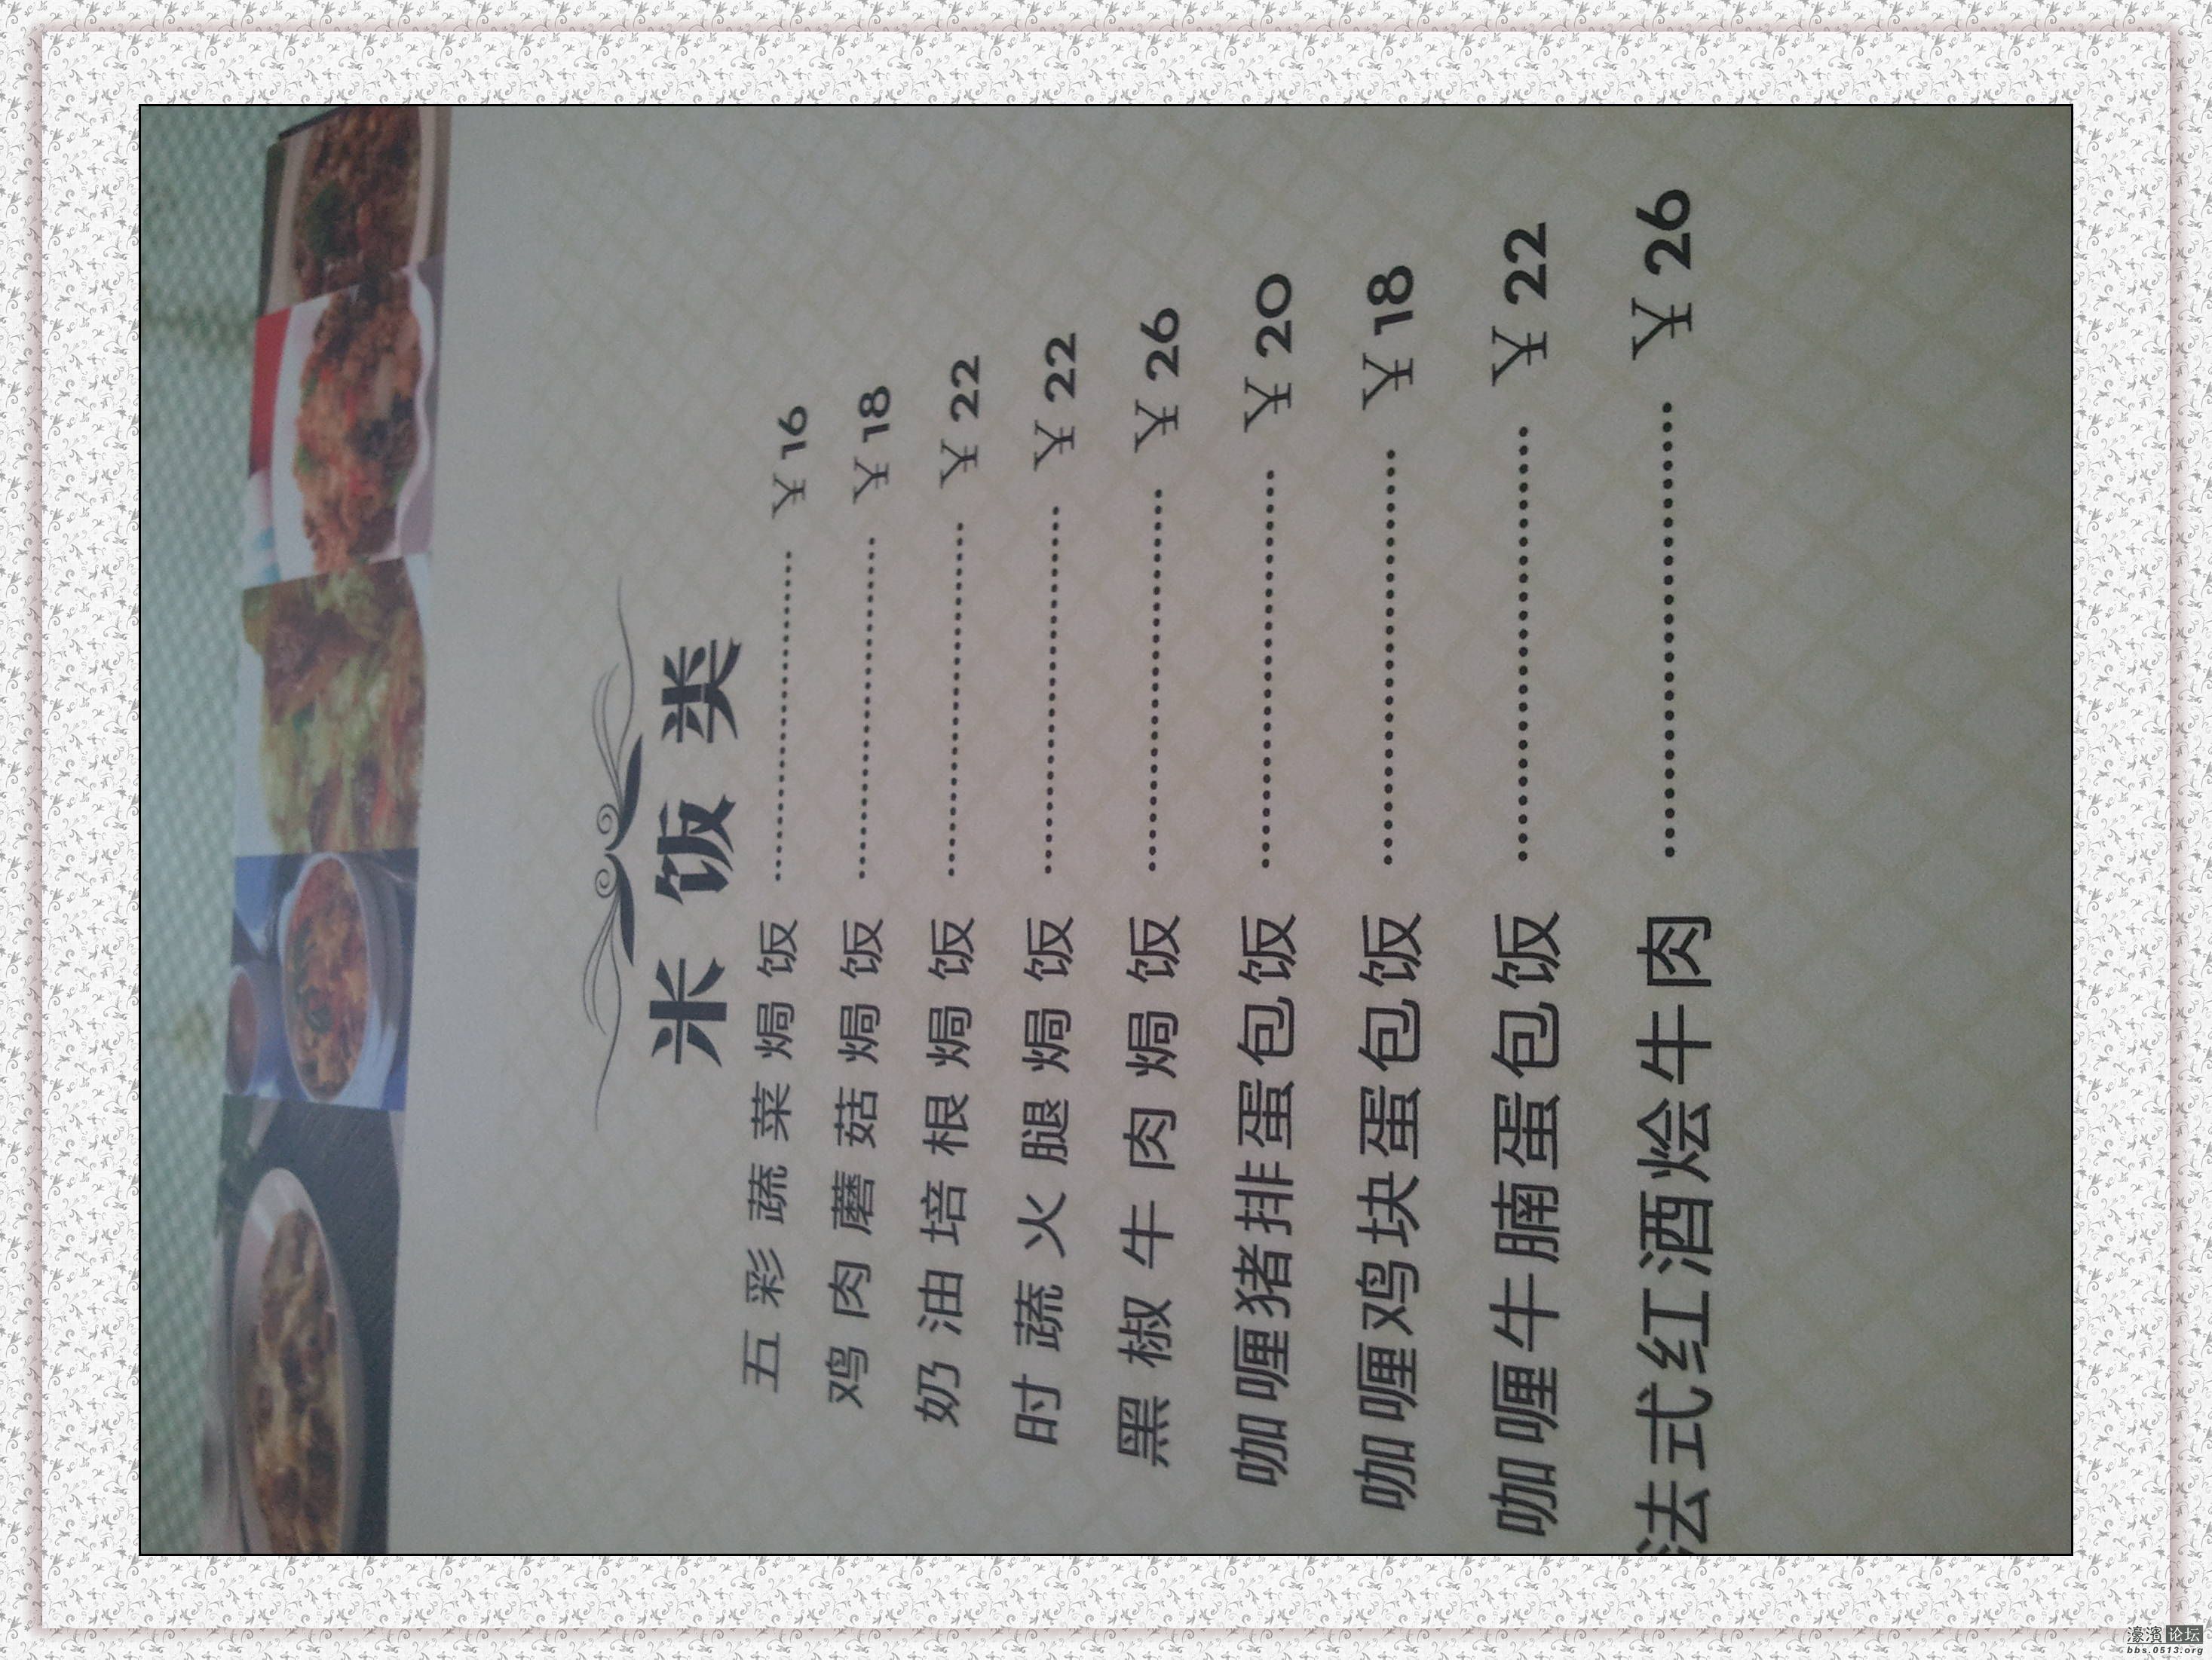 米饭类
五彩蔬菜焗饭 ¥16
鸡肉蘑菇焗饭 ¥18
奶油培根焗饭 ¥22
时蔬火腿焗饭 ¥22
黑椒牛肉焗饭 ¥26
咖喱猪排蛋包饭 ¥20
咖喱鸡块蛋包饭 ¥18
咖喱牛腩蛋包饭 ¥22
法式红酒烩牛肉 ¥26
濠滨论坛
bbs.0513.org